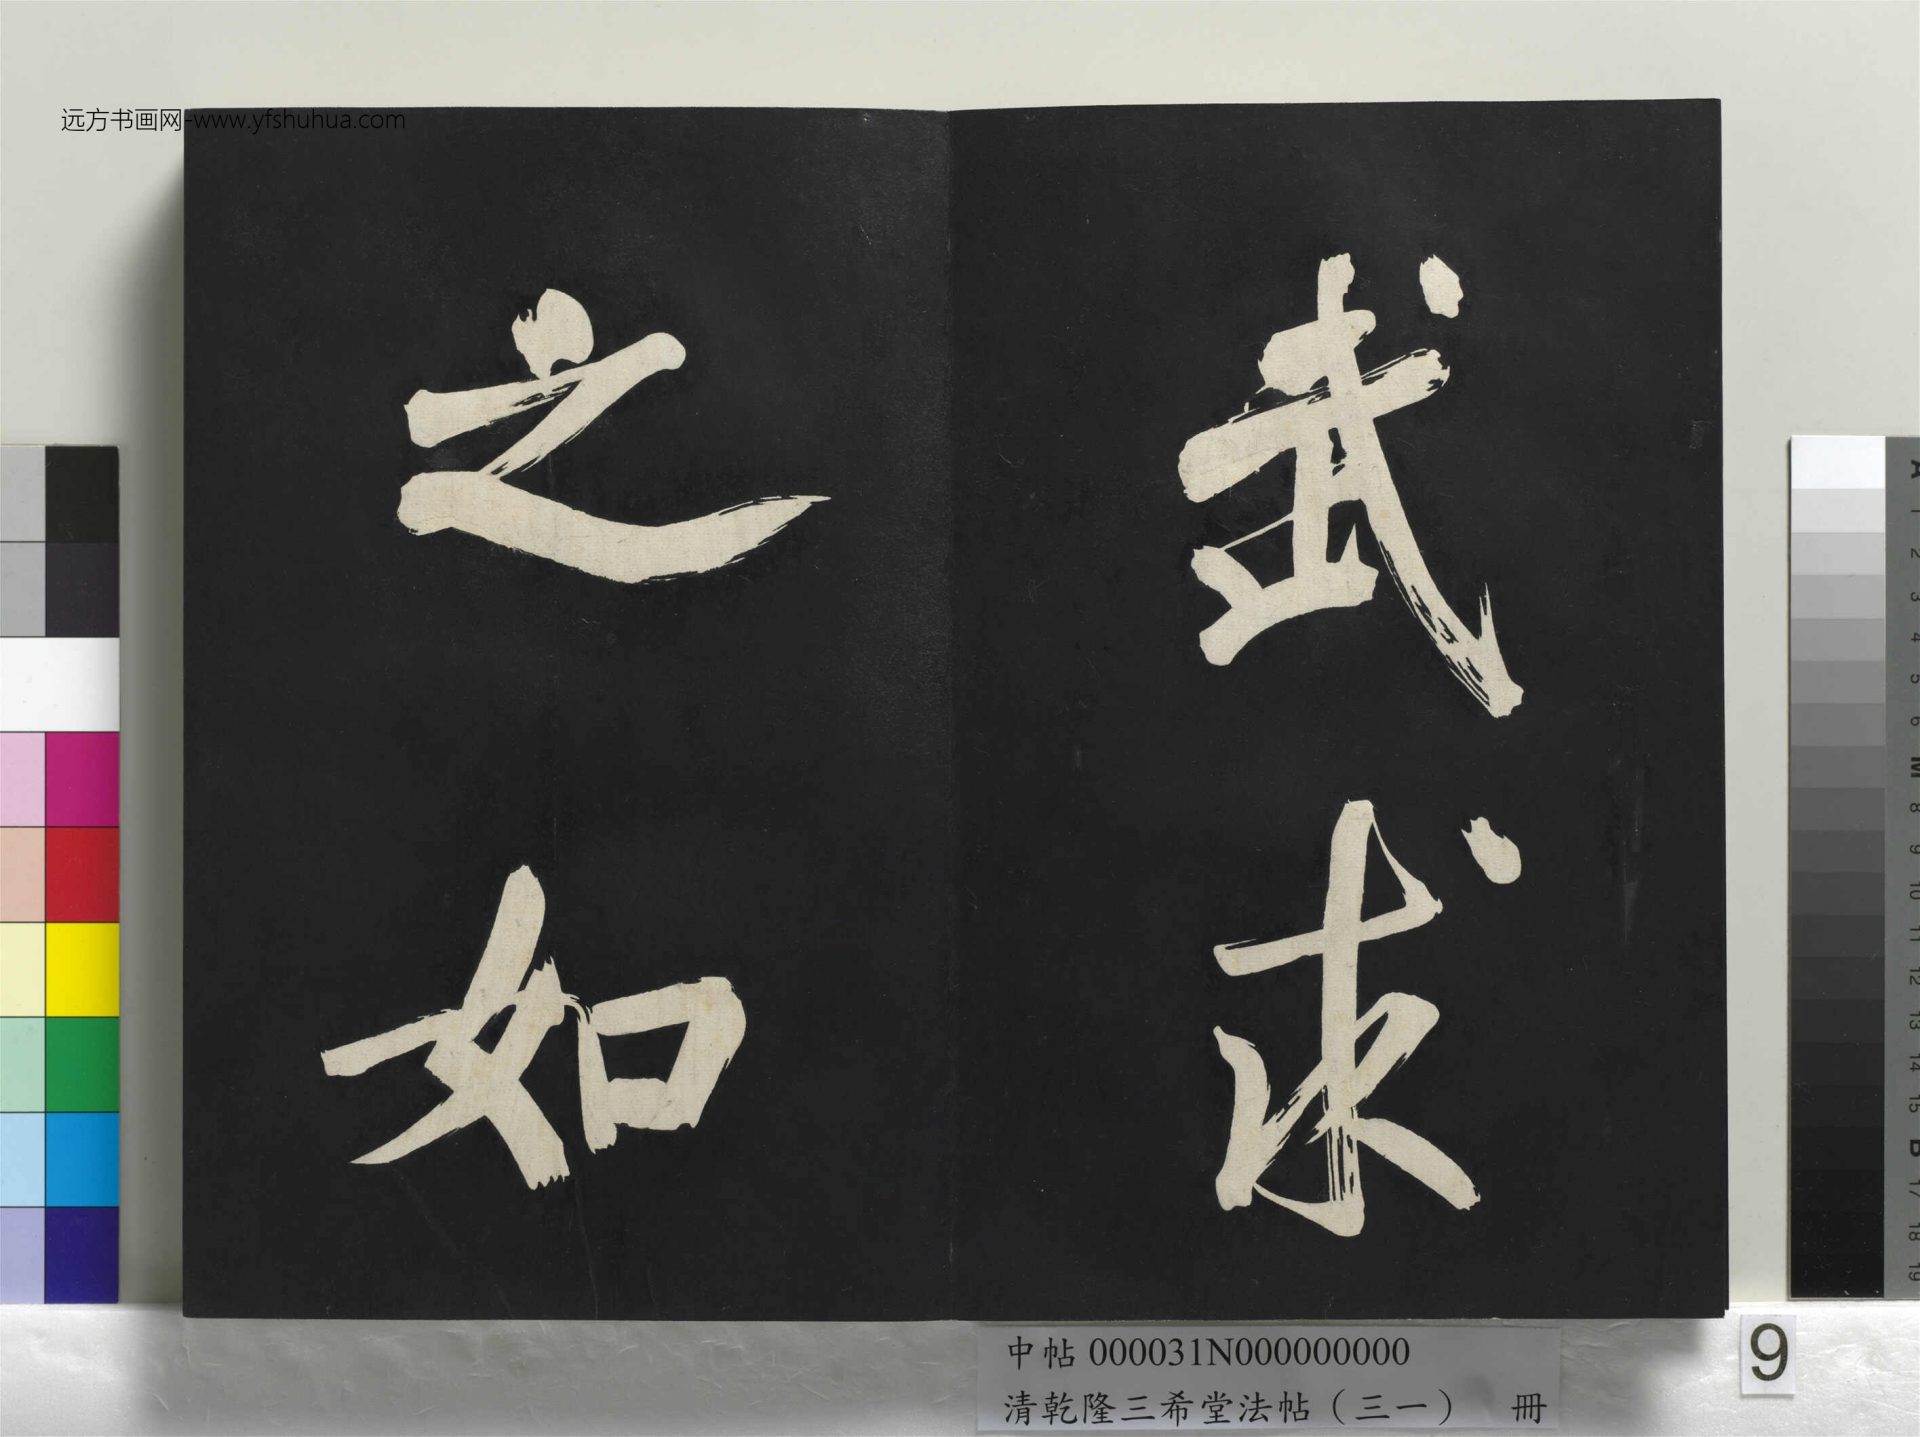 远方书画网-www.yfshuhua.com
武求
之如
中帖 000031N000000000
清乾隆三希堂法帖（三一） 冊
9
A
1
2
3
4
5
6
M
8
9
10
11
12
13
14
15
B
17
18
19